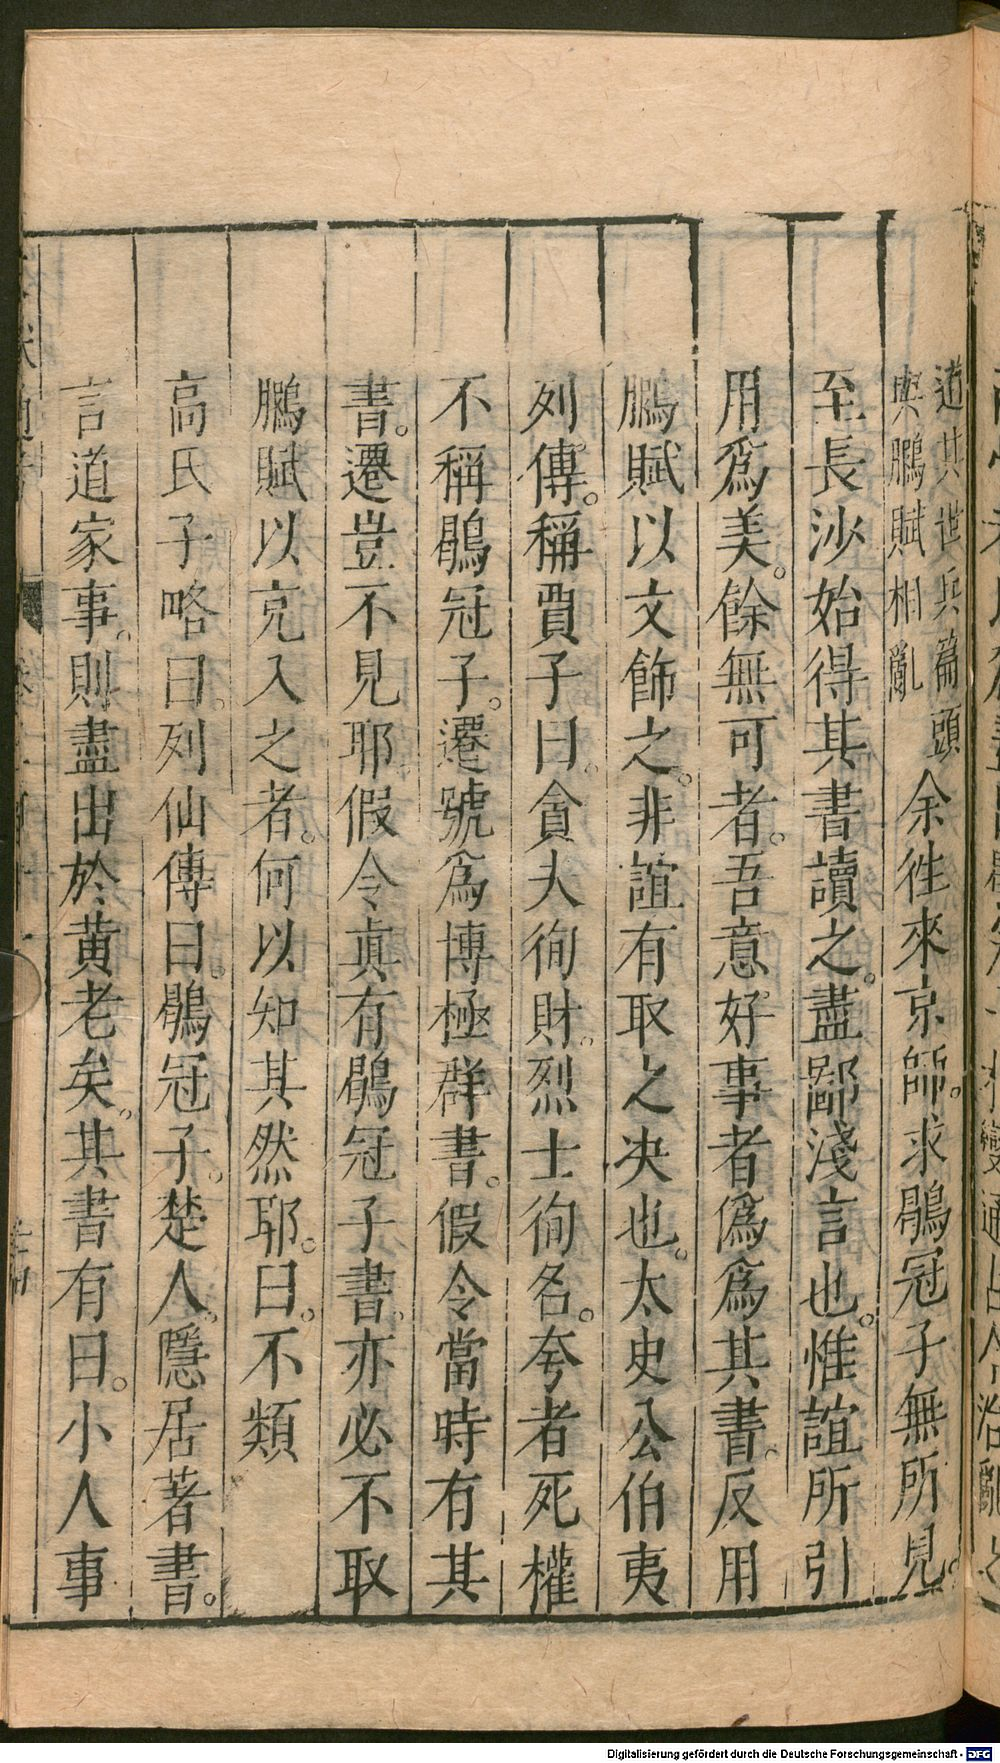 道其世兵篇頭
與鵩賦相亂
余徃來京師。求鶡冠子無所見。
至長沙始得其書讀之。盡鄙淺言也。惟誼所引
用爲美。餘無可者。吾意好事者僞爲其書。反用
鵩賦以文飾之。非誼有取之决也。太史公伯夷
列傳。稱賈子曰。貪夫徇財。烈士徇名。夸者死權
不稱鶡冠子。遷號爲博極群書。假令當時有其
書。遷豈不見耶。假令眞有鶡冠子書。亦必不取
鵩賦以充入之者。何以知其然耶。曰。不類
高氏子略。曰。列仙傳曰。鶡冠子。楚人。隱居著書。
言道家事。則盡出於黄老矣。其書有曰。小人事
Digitalisierung gefördert durch die Deutsche Forschungsgemeinschaft - DFG